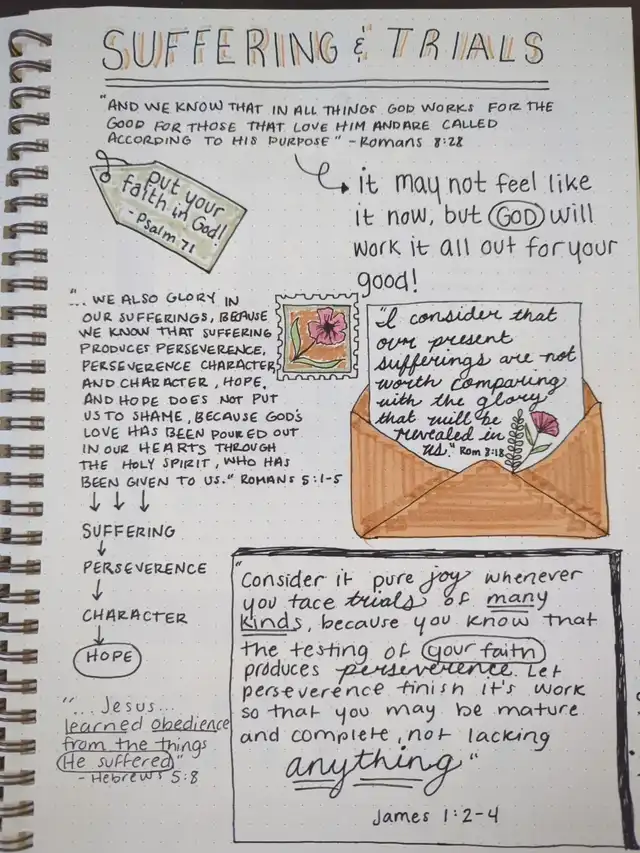 SUFFERING & TRIALS
"AND WE KNOW THAT IN ALL THINGS GOD WORKS FOR THE
GOOD FOR THOSE THAT LOVE HIM AND ARE CALLED
ACCORDING TO HIS PURPOSE" - Romans 8:28
it may not feel like
it now, but GOD will
work it all out for your
good!
put your
faith in God!
- Psalm 71
"... WE ALSO GLORY IN
OUR SUFFERINGS, BECAUSE
WE KNOW THAT SUFFERING
PRODUCES PERSEVERANCE,
PERSEVERANCE CHARACTER
AND CHARACTER, HOPE.
AND HOPE DOES NOT PUT
US TO SHAME, BECAUSE GOD'S
LOVE HAS BEEN POURED OUT
IN OUR HEARTS THROUGH
THE HOLY SPIRIT, WHO HAS
BEEN GIVEN TO US." ROMANS 5:1-5
SUFFERING
PERSEVERENCE
CHARACTER
HOPE
"I consider that
our present
sufferings are not
worth comparing
with the glory
that will be
revealed in
us." Rom 8:18
"Consider it pure joy whenever
you face trials of many
kinds, because you know that
the testing of your faith
produces perseverence. Let
perseverence finish it's work
so that you may be mature
and complete, not lacking
anything"
James 1:2-4
"... Jesus...
learned obedience
from the things
He suffered"
- Hebrews 5:8